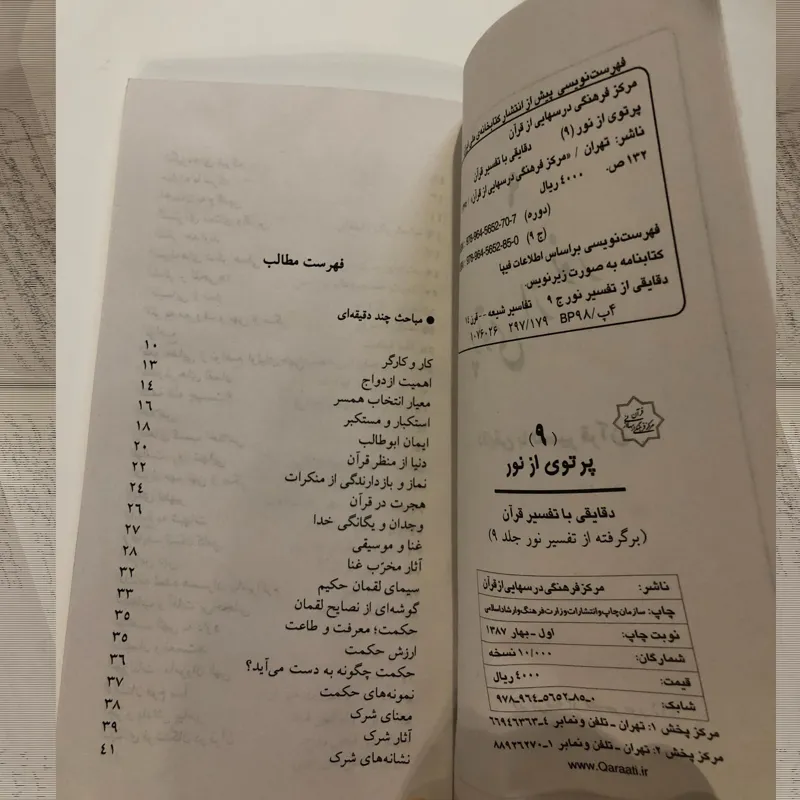 فهرست‌نویسی پیش از انتشار کتابخانه‌ی ملی
مرکز فرهنگی درسهایی از قرآن
پرتوی از نور (۹) دقایقی با تفسیر قرآن
ناشر: تهران / «مرکز فرهنگی درسهایی از قرآن»
۱۳۲ ص. ۴۰۰۰ ریال
978-964-5652-70-7 (دوره)
978-964-5652-85-0 (ج ۹)
فهرست‌نویسی براساس اطلاعات فیپا
کتابنامه به صورت زیرنویس.
دقایقی از تفسیر نور ج ۹ تفاسیر شیعه -- قرن ۱۴
۴پ/BP۹۸ ۲۹۷/۱۷۹ ۱۰۷۶۰۲۶
(۹)
پرتوی از نور
دقایقی با تفسیر قرآن
(برگرفته از تفسیر نور جلد ۹)
ناشر: مرکز فرهنگی درسهایی از قرآن
چاپ: سازمان چاپ و انتشارات وزارت فرهنگ و ارشاد اسلامی
نوبت چاپ: اول - بهار ۱۳۸۷
شمارگان: ۱۰/۰۰۰ نسخه
قیمت: ۴۰۰۰ ریال
شابک: ۹۷۸-۹۶۴-۵۶۵۲-۸۵-۰
مرکز پخش ۱: تهران - تلفن و نمابر ۴-۶۶۹۴۶۳۶۳
مرکز پخش ۲: تهران - تلفن و نمابر ۱-۸۸۹۲۶۲۷۰
www.Qaraati.ir
فهرست مطالب
● مباحث چند دقیقه‌ای
کار و کارگر ۱۰
اهمیت ازدواج ۱۳
معیار انتخاب همسر ۱۴
استکبار و مستکبر ۱۶
ایمان ابوطالب ۱۸
دنیا از منظر قرآن ۲۰
نماز و بازدارندگی از منکرات ۲۲
هجرت در قرآن ۲۴
وجدان و یگانگی خدا ۲۶
غنا و موسیقی ۲۷
آثار مخرّب غنا ۲۸
سیمای لقمان حکیم ۳۲
گوشه‌ای از نصایح لقمان ۳۳
حکمت؛ معرفت و طاعت ۳۵
ارزش حکمت ۳۵
حکمت چگونه به دست می‌آید؟ ۳۶
نمونه‌های حکمت ۳۷
معنای شرک ۳۸
آثار شرک ۳۹
نشانه‌های شرک ۴۱